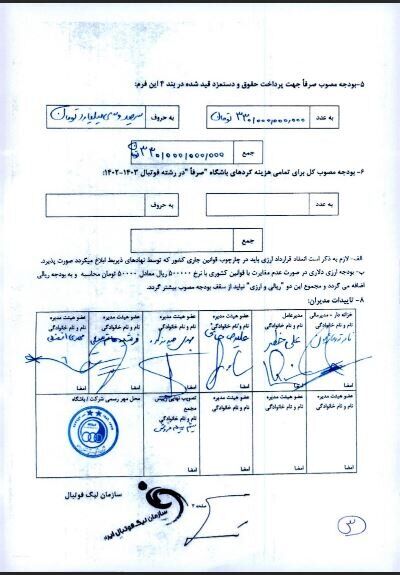 ۵-بودجه مصوب صرفاً جهت پرداخت حقوق و دستمزد قید شده در بند ۴ این فرم:
به عدد ۳۳۰/۰۰۰/۰۰۰/۰۰۰ تومان به حروف سیصد و سی میلیارد تومان
جمع ۳۳۰/۰۰۰/۰۰۰/۰۰۰
۶-بودجه مصوب کل برای تمامی هزینه کردهای باشگاه "صرفاً" در رشته فوتبال ۱۴۰۳-۱۴۰۲:
به عدد به حروف
جمع
الف- لازم به ذکر است انعقاد قرارداد ارزی باید در چارچوب قوانین جاری کشور که توسط نهادهای ذیربط ابلاغ میگردد صورت پذیرد.
ب- بودجه ارزی دلاری در صورت عدم مغایرت با قوانین کشوری با نرخ ۵۰۰۰۰۰ ریال معادل ۵۰۰۰۰ تومان محاسبه و به بودجه ریالی
اضافه می گردد و مجموع این دو "ریالی و ارزی" نباید از سقف بودجه مصوب بیشتر گردد.
۸- تاییدات مدیران:
خزانه دار - مدیرمالی مدیرعامل عضو هیئت مدیره عضو هیئت مدیره عضو هیئت مدیره عضو هیئت مدیره
نام و نام خانوادگی نام و نام خانوادگی نام و نام خانوادگی نام و نام خانوادگی نام و نام خانوادگی نام و نام خانوادگی
علی خطیر
امضا امضا امضا امضا امضا امضا
عضو هیئت مدیره عضو هیئت مدیره عضو هیئت مدیره تصویب نهایی رئیس مجمع محل مهر رسمی شرکت / باشگاه
نام و نام خانوادگی نام و نام خانوادگی نام و نام خانوادگی نام و نام خانوادگی
امضا امضا امضا امضا
سازمان لیگ فوتبال
صفحه ۳
سازمان لیگ فوتبال ایران
۳